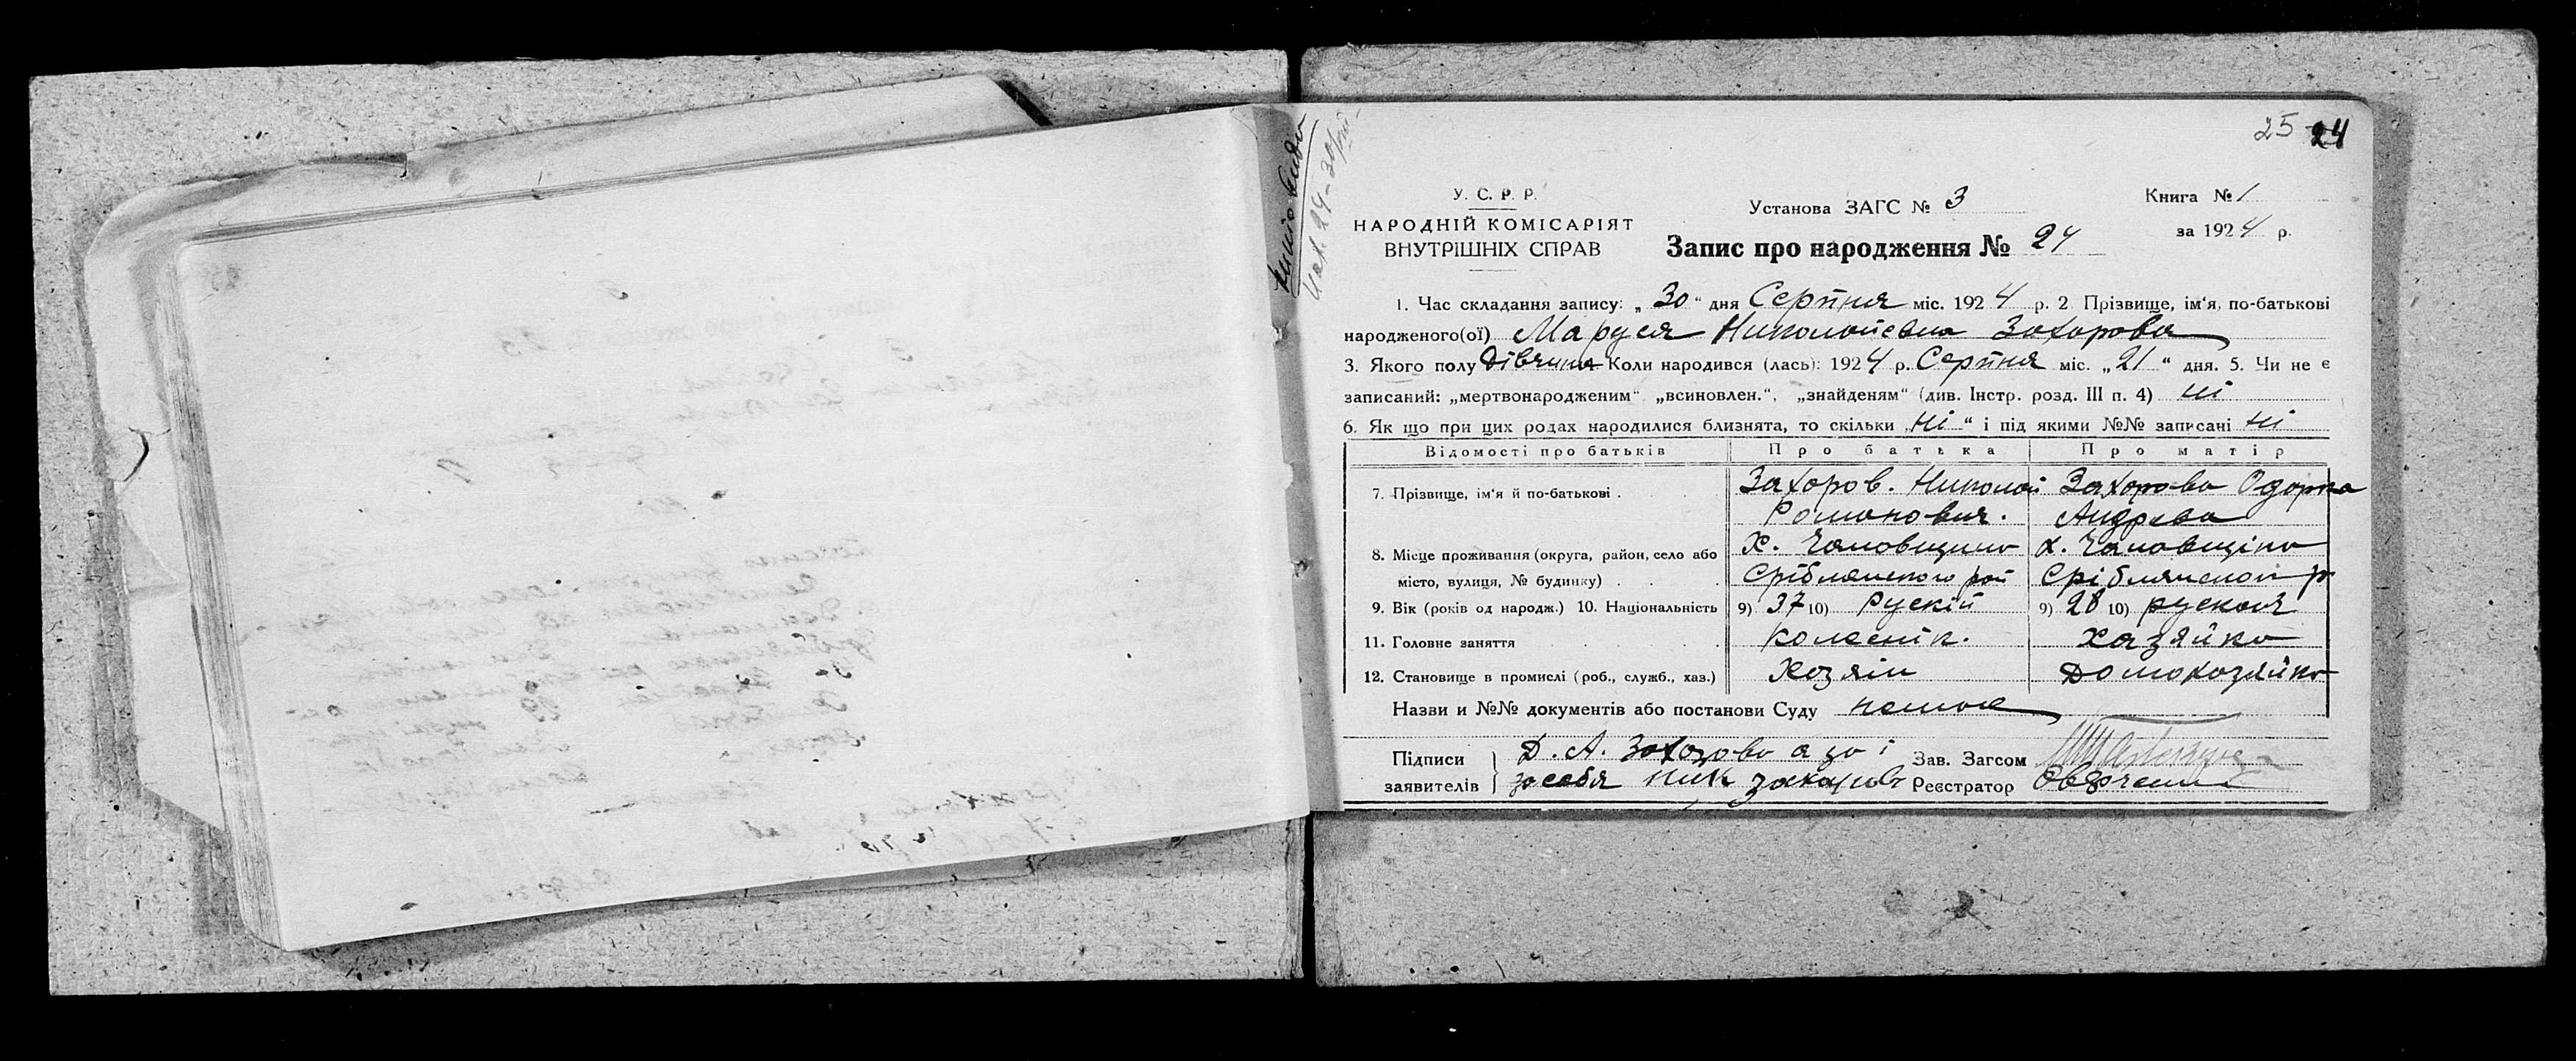 25 24
У. С. Р. Р.
НАРОДНІЙ КОМІСАРІЯТ
ВНУТРІШНІХ СПРАВ
Установа ЗАГС № 3
Книга № 1
за 1924 р.
Запис про народження № 24
1. Час складання запису: „ 30 “ дня Серпня міс. 1924 р. 2. Прізвище, ім‘я, по-батькові
народженого(ої) Маруся Николаевна Захорова
3. Якого полу Дівчина Коли народився (лась): 1924 р. Серпня міс. „ 21 “ дня. 5. Чи не є
записаний: „мертвонародженим“ „всиновлен.“, „знайденям“ (див. Інстр. розд. III п. 4) ні
6. Як що при цих родах народилися близнята, то скільки „ ні “ і під якими №№ записані ні
Відомості про батьків Про батька Про матір
7. Прізвище, ім‘я й по-батькові . Захоров. Николай Захорова Одарка
Романович. Андрева
8. Місце проживання (округа, район, село або Х. Чамовщина х. Чамовщіна
місто, вулиця, № будинку) . Срібл﻿янського рай Сріблянского р
9. Вік (років од народж.) 10. Національність 9) 37 10) Рускій 9) 28 10) руская
11. Головне заняття колеснік. Хазяйка
12. Становище в промислі (роб., служб., хаз.) Хозяін Домохозяйка
Назви и №№ документів або постанови Суду немає
Підписи Д. А. Захорова а за і Зав. Загсом
заявителів за себя Ник Захаров Реєстратор